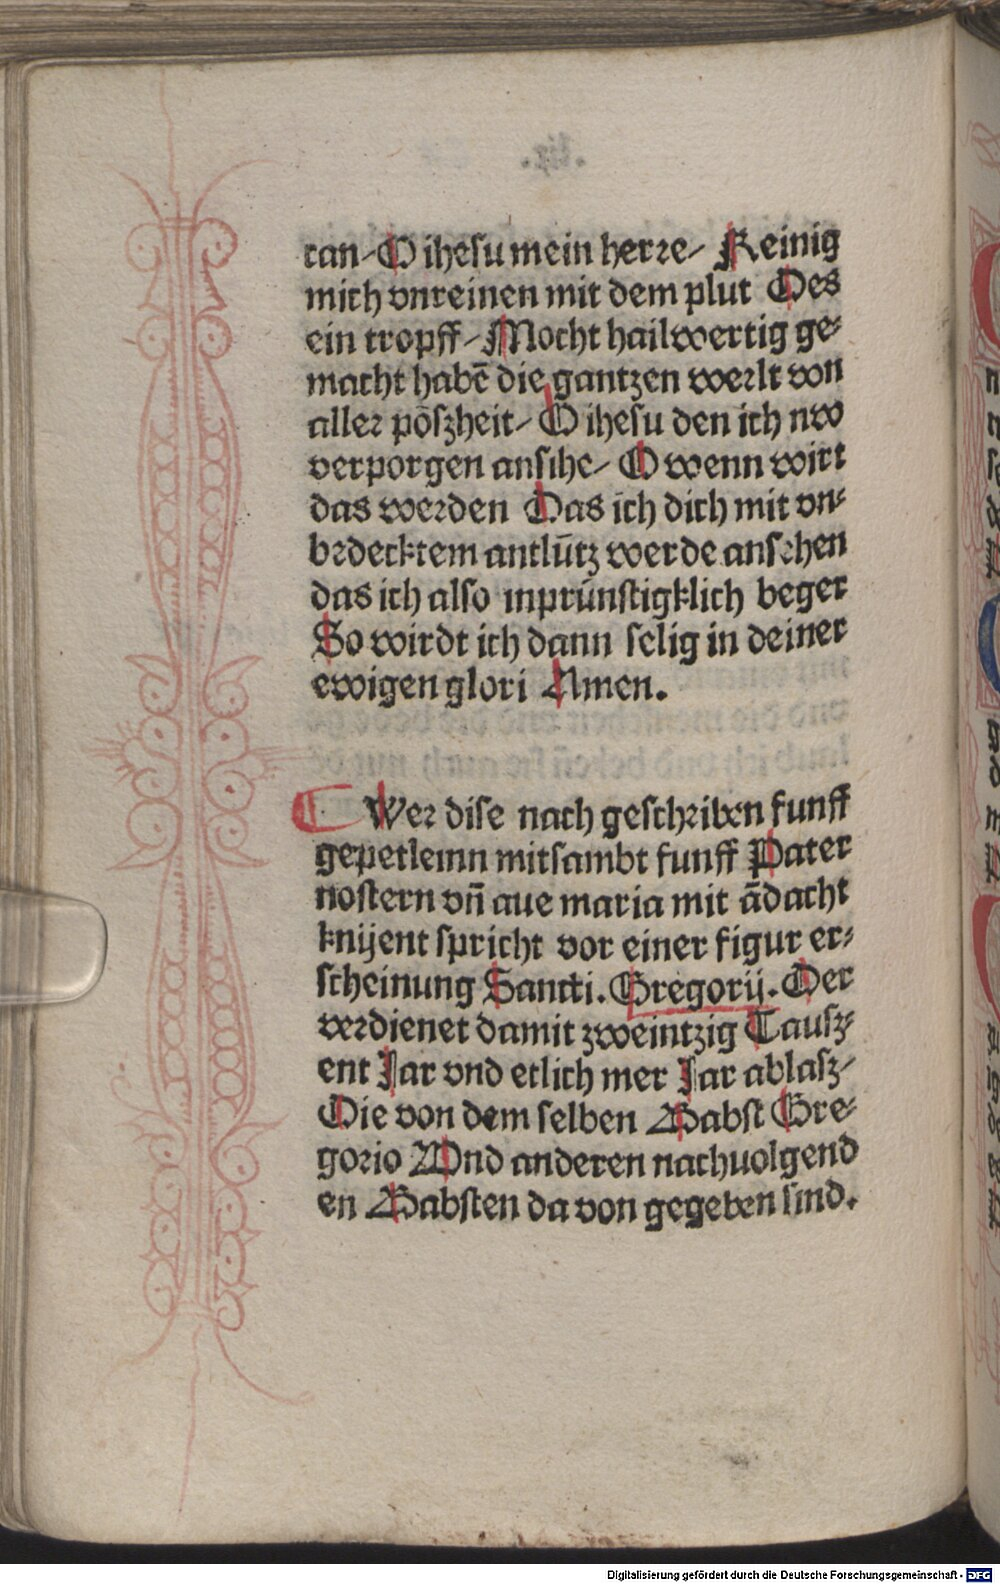 can⸗ O ihesu mein herꝛe⸗ Reinig
mich vnreinen mit dem plut Des
ein tropff⸗ Mocht hailwertig ge⸗
macht habē die gantzen werlt von
alleꝛ pőſzheit⸗ O iheſu den ich nw
verporgen anſihe⸗ O wenn wirt
das weꝛden Das ich dich mit vn⸗
bedecktem antlűtz werde anſehen
das ich alſo inprűnſtigklich beger
So wirdt ich dann ſelig in deiner
ewigen glori Amen.
Weꝛ diſe nach geſchꝛiben funff
gepetlemn mitſambt funff Pater
noſtern vn̄ aue maria mit ādacht
knijent ſpricht vor einer figur er⸗
ſcheinung Sancti. Gregorij. Der
veꝛdienet damit zweintzig Tauſz⸗
ent Jar vnd etlich mer Jar ablaſz⸗
Die von dem ſelben Babſt Gre⸗
goꝛio Vnd anderen nachuolgend
en Babſten da von gegeben ſind.
Digitalisierung gefördert durch die Deutsche Forschungsgemeinschaft - DFG